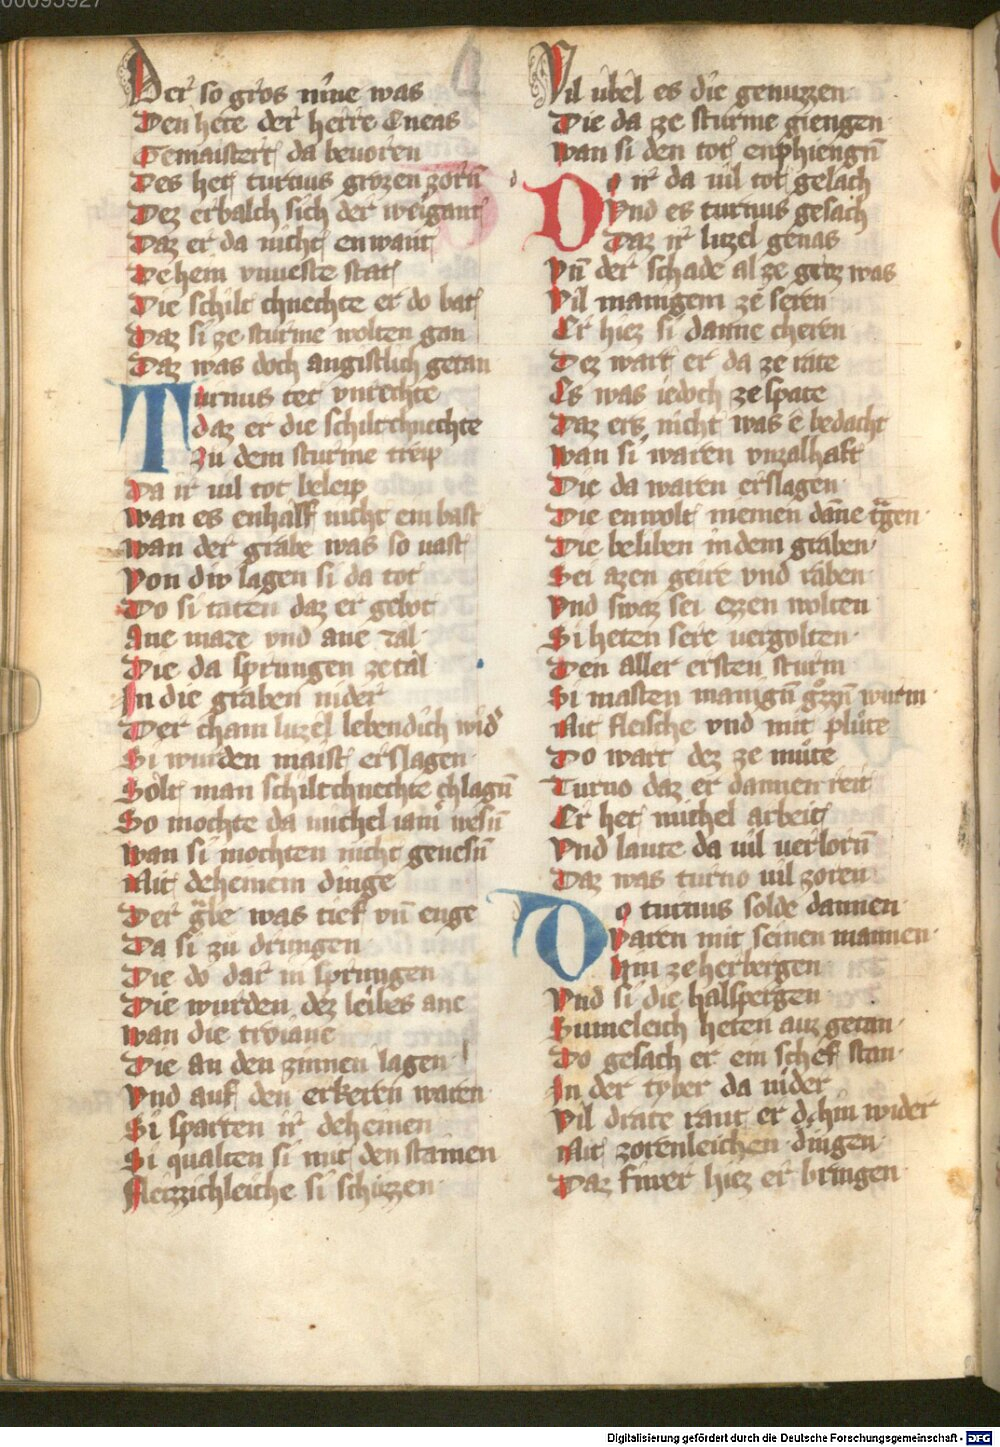 00095927
Der so gros nine was
Den hete der herre Eneas
Gemaistert da beuoren
Des het turnus grozen zorn̄
Dez erbalch sich der weigant
Daz er da nicht enwant
Dehein vnueste stat
Die schilt chnechte er do bat
Daz si ze sturme wolten gan
Daz was doch angistlich getan
Turnus tet vnrechte
daz er die schiltchnechte
Zu dem sturme treip
Da ir uil tot beleip
wan es enhalf nicht ein bast
wan der grabe was so uast
Von div lagen si da tot
Do si taten daz er gebot
Ane maze vnd ane zal
Die da sprungen zetal
In die graben nider
Der cham luzel lebendich wid͛
Si wurden maist erslagen
Solt man schiltchnechte chlagn̄
So mochte da michel iam͛ wesn̄
wan si mochten nicht genesn̄
Mit deheinem dinge
Der gͣbe was tief vn̄ enge
Da si zu drungen
Die do dar in sprungen
Die wurden dez leibes ane
wan die troiane
Die an den zinnen lagen
Vnd auf den erkeren waren
Si sparten ir deheinen
Si qualten si mit den stainen
Fleizzichleiche si schuzzen
Vil ubel es die genuzzen
Die da ze sturme giengen
wan si den tot enphiengn̄
Do ir da uil tot gelach
Vnd es turnus gesach
Daz ir luzel genas
Vn̄ der schade al ze groz was
Vil manigem ze seren
Er hiez si danne cheren
Dez wart er da ze rate
Es was iedoch ze spate
Daz ers nicht was e bedacht
wan si waren vnzalhaft
Die da waren erslagen
Die enwolt niemen dan̄e tͣgen
Die beliben in dem graben
Sei azen geire vnd raben
Vnd swaz sei ezzen wolten
Si heten sere uergolten
Den aller ersten sturm
Si masten manign̄ gͦzzn̄ wurm
Mit fleische vnd mit plůte
Do wart dez ze můte
Turno daz er dannen reit
Er het michel arbeit
Vnd laute da uil uerlorn̄
Daz was turno uil zoren
Do turnus solde dannen
Varen mit seinen mannen
Hin ze herbergen
Vnd si die halspergen
Sumeleich heten auz getan
Do gesach er ein schef stan
In der tyber da nider
Vil drate rant er dohin wider
Mit zorenleichen dingen
Daz fiwer hiez er bringen
Digitalisierung gefördert durch die Deutsche Forschungsgemeinschaft - DFG